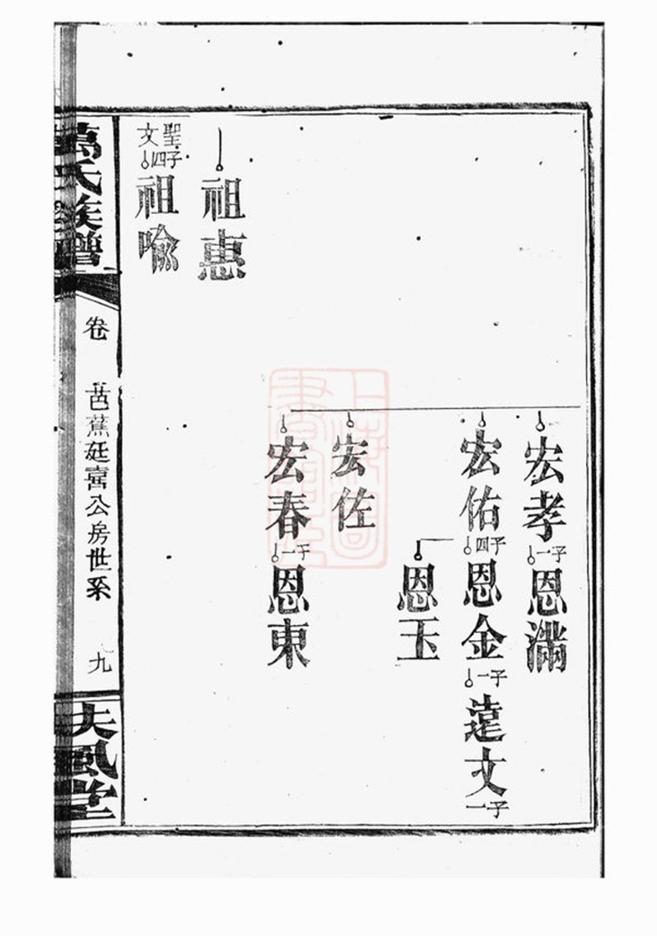 宏孝一子恩滿
宏佑四子恩金一子遠文一子
恩玉
宏佐
宏春一子恩東
祖惠
聖文四子祖喻
萬氏族譜
卷
芭蕉廷富公房世系
九
大風堂